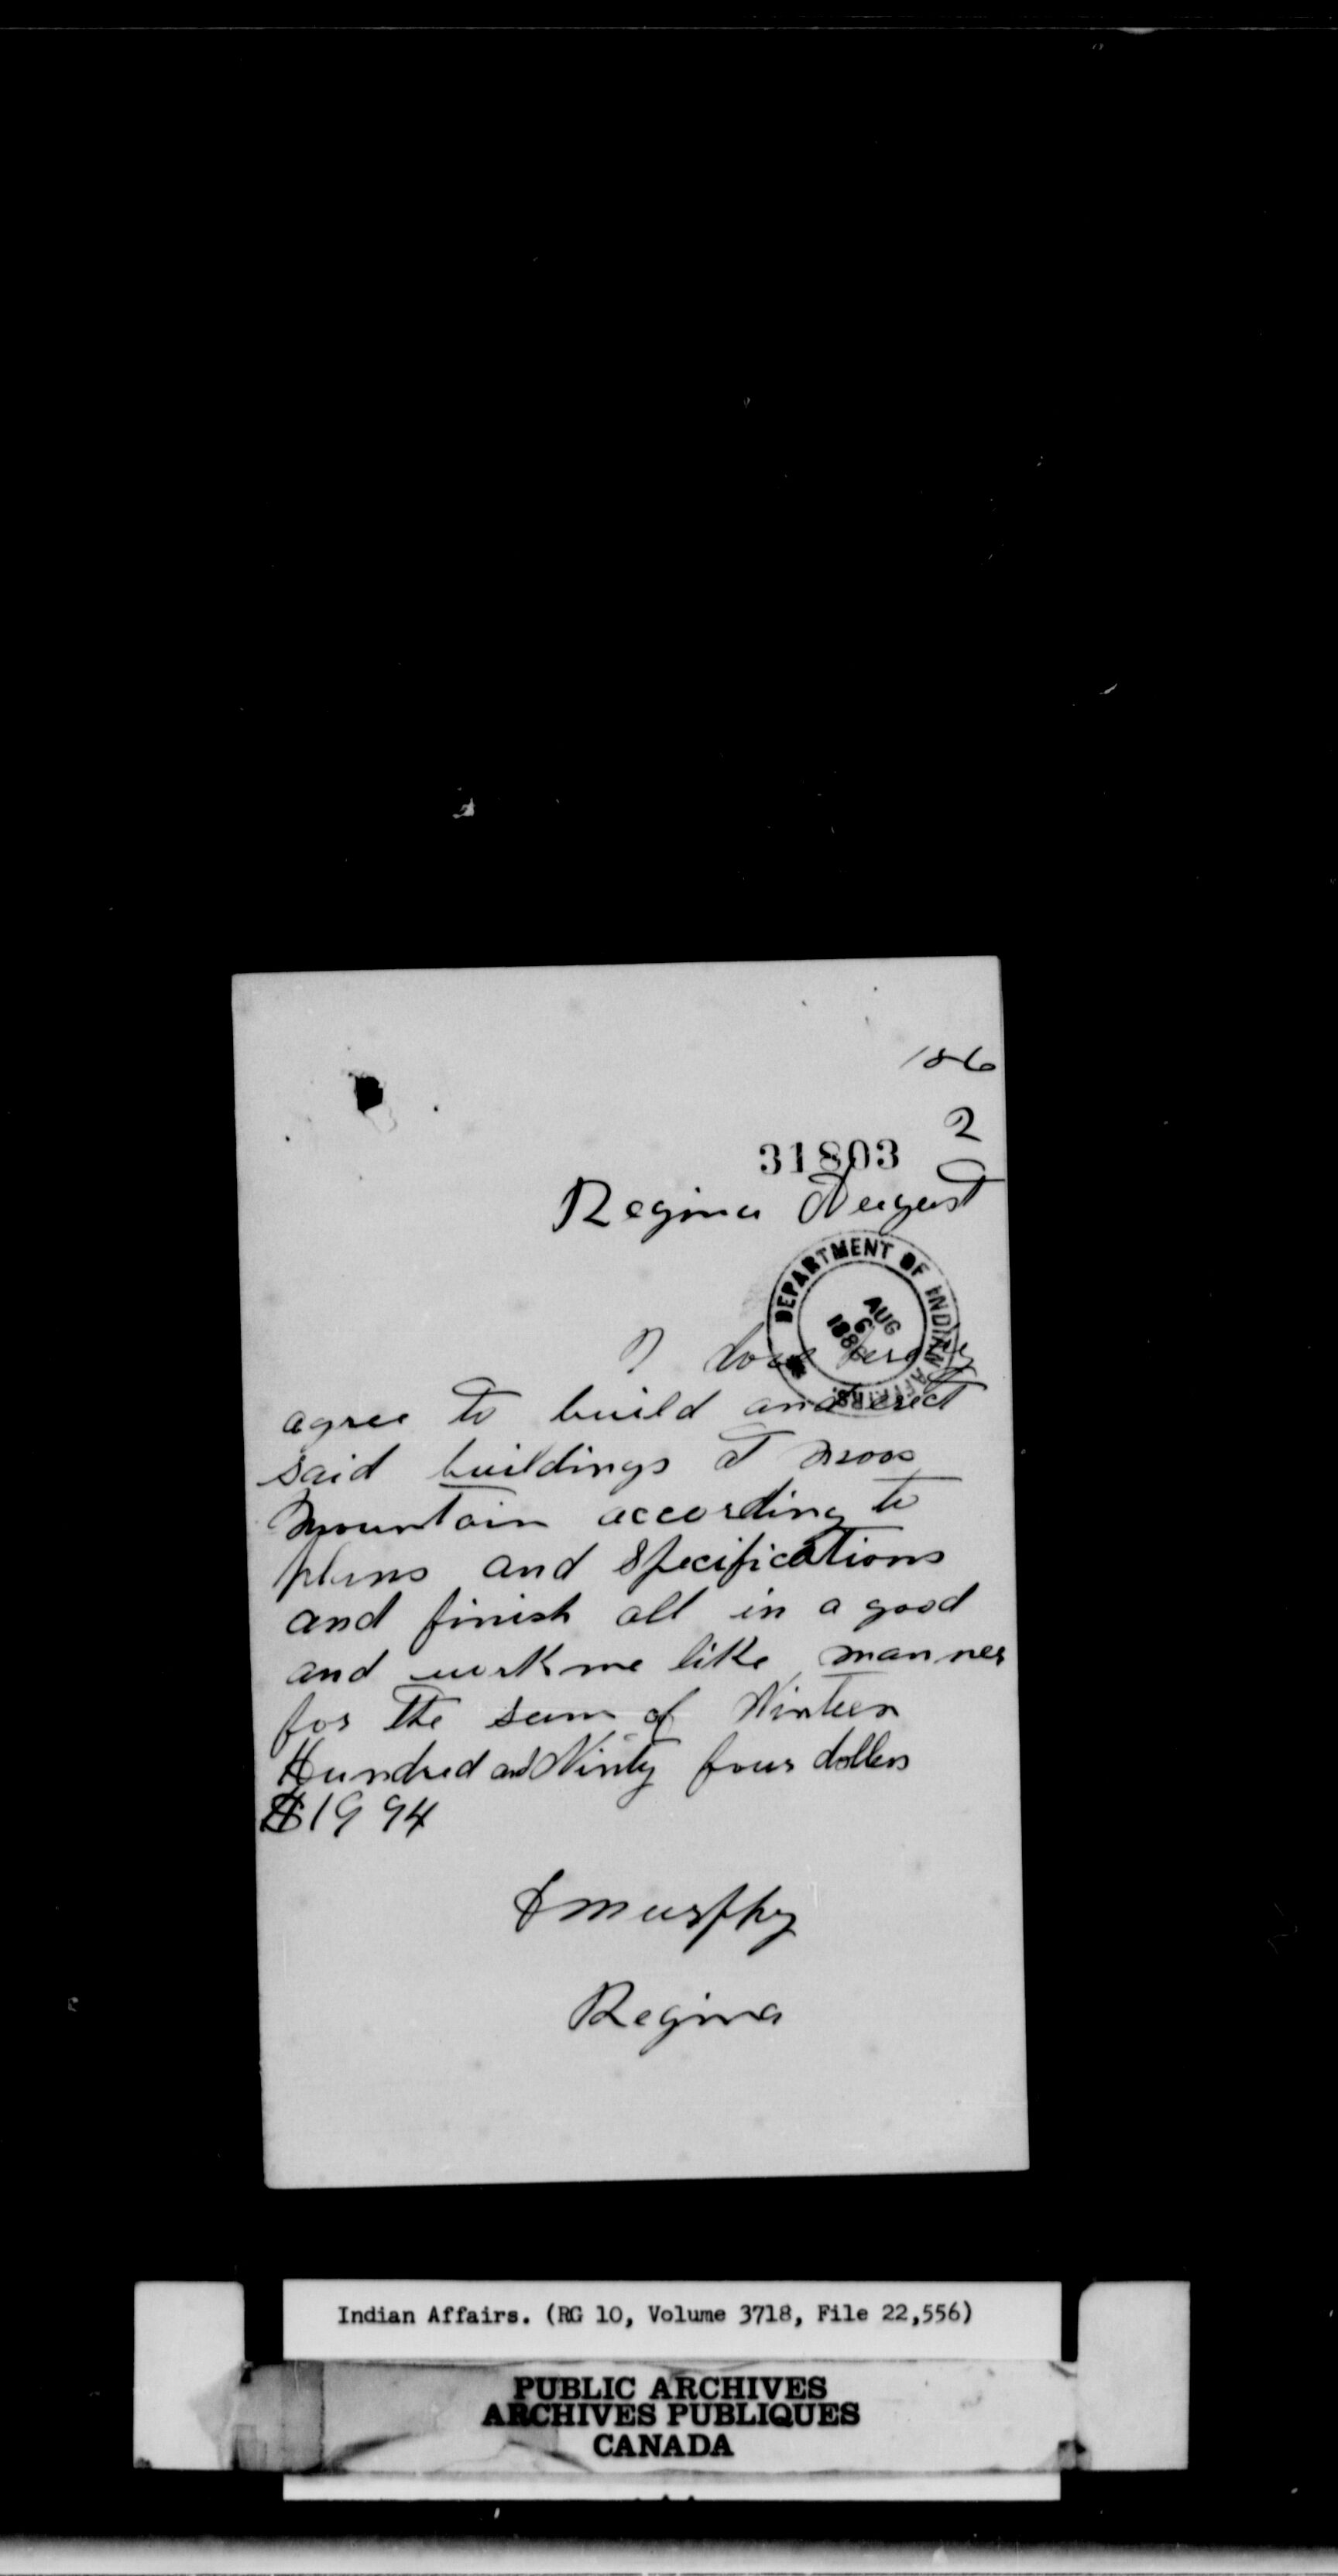 186
2
31803
Regina August
DEPARTMENT OF INDIAN AFFAIRS.
AUG
6
188
I do hereby
agree to build and erect
said buildings at Moos
Mountain according to
plans and specifications
and finish all in a good
and workme like manner
for the sum of Ninteen
Hundred and Ninty four dollers
$1994
Murphy
Regina
Indian Affairs. (RG 10, Volume 3718, File 22,556)
PUBLIC ARCHIVES
ARCHIVES PUBLIQUES
CANADA